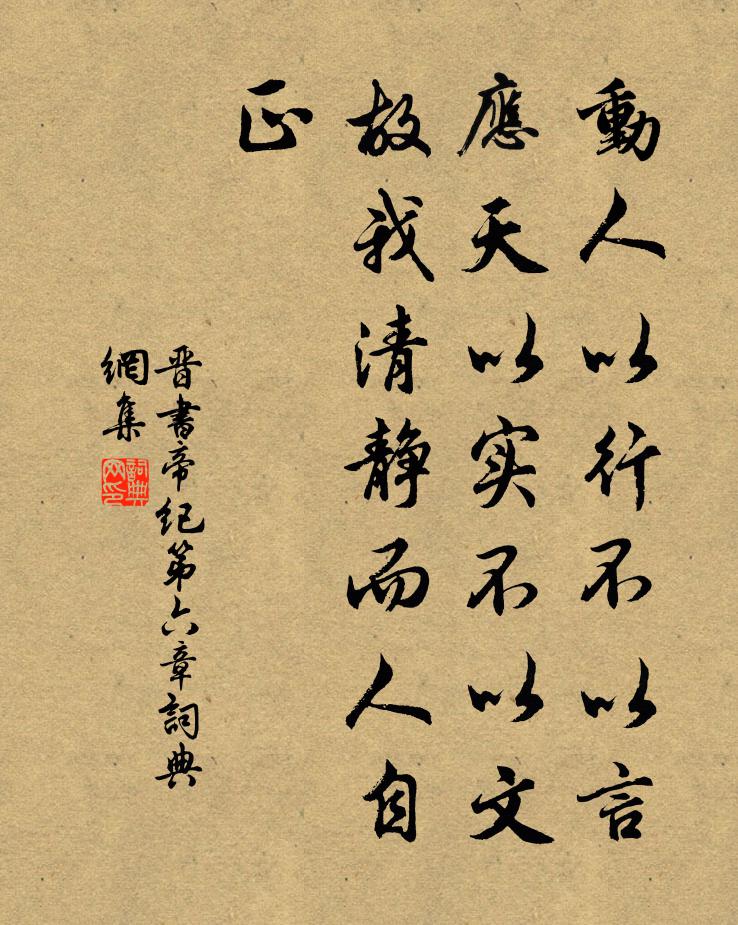 動人以行不以言
應天以实不以文
故我清静而人自
正
晋書帝纪第六章詞典
網集
詞典
网印